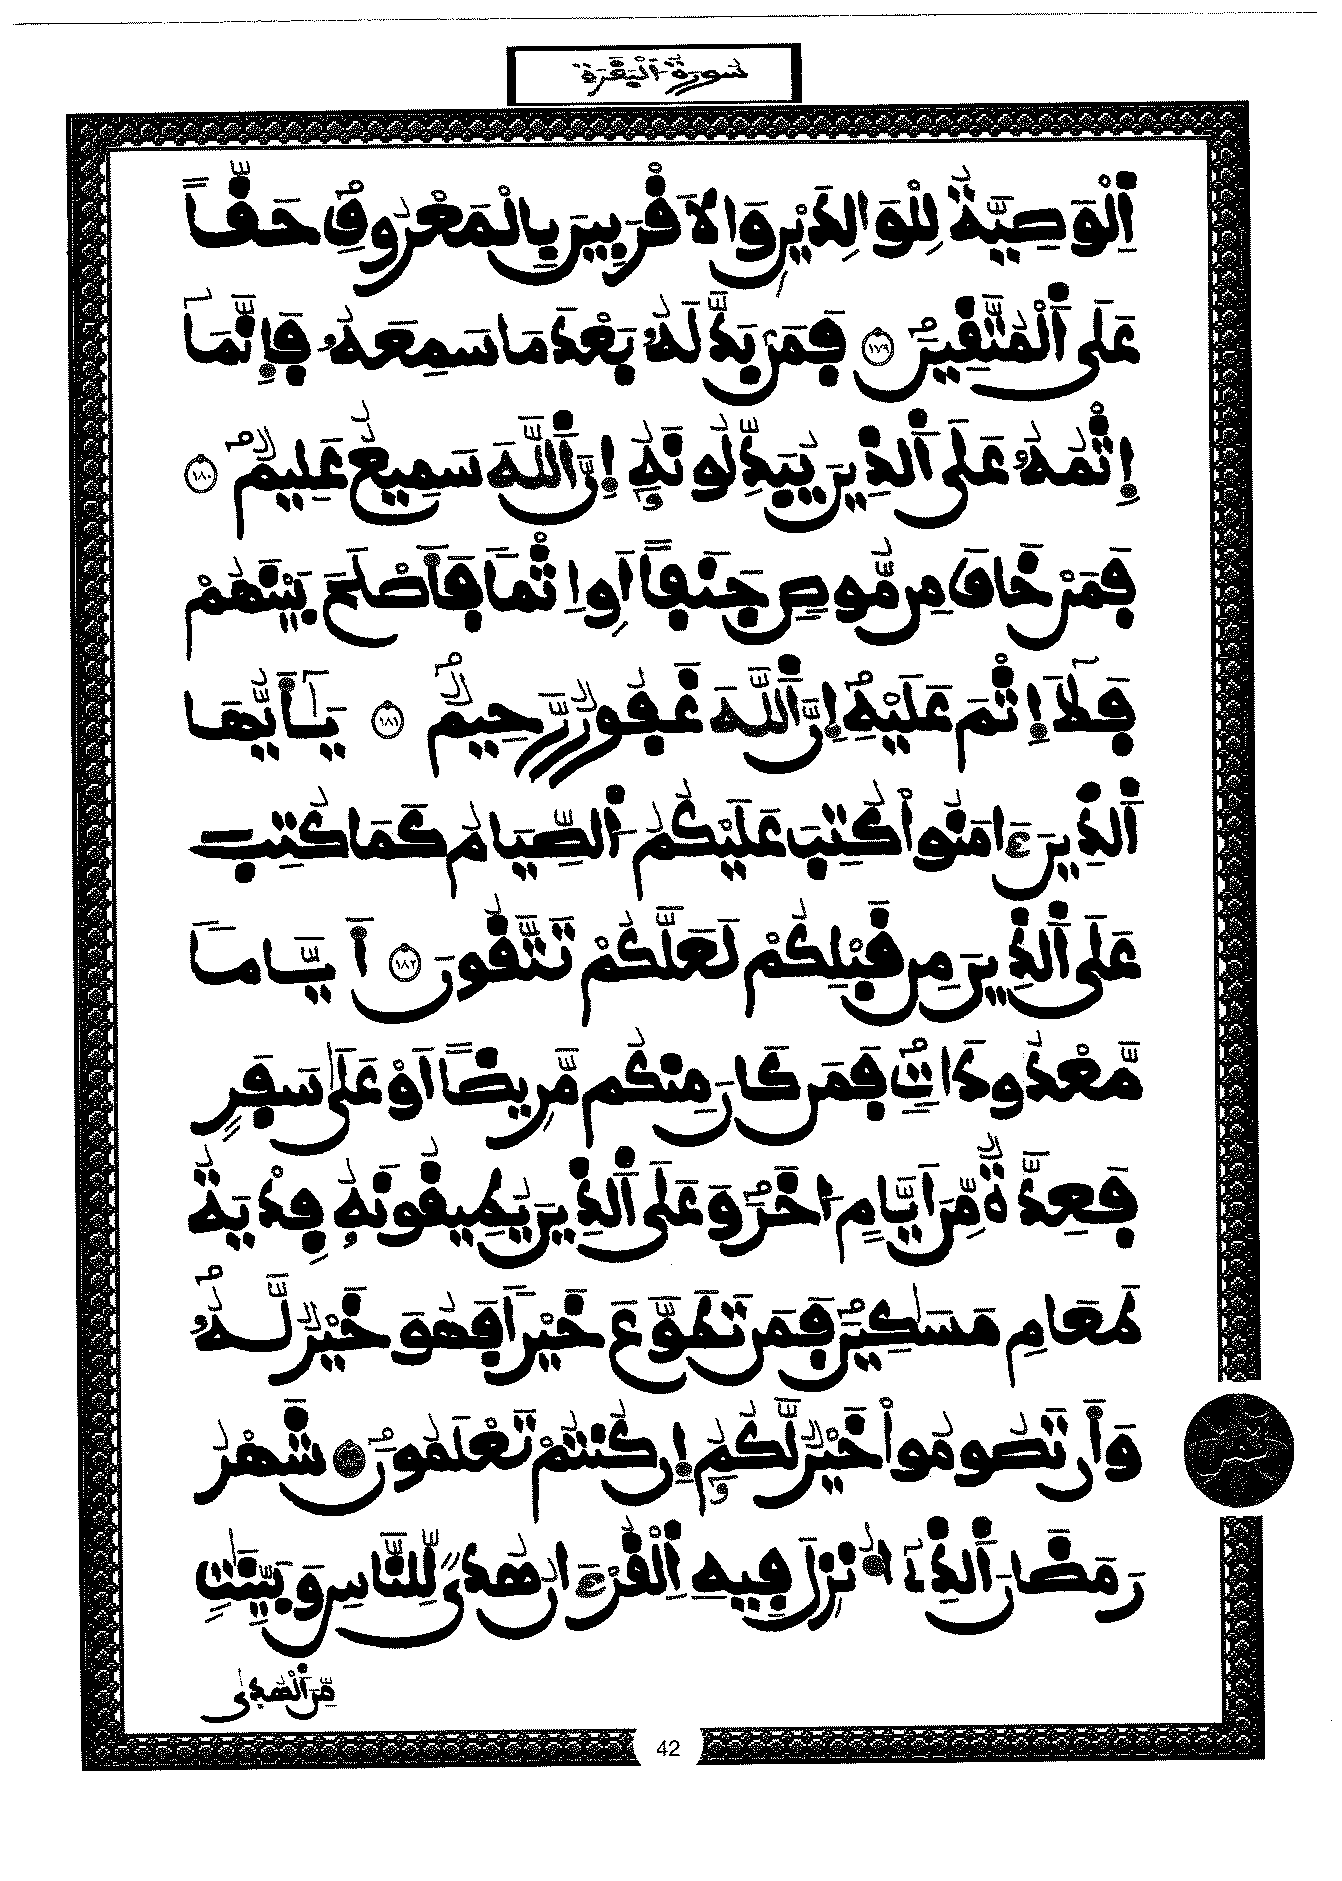 سورة البقرة
اَ۬لْوَصِيَّةُ لِلْوَٰلِدَيْنِ وَالَاقْرَبِينَ بِالْمَعْرُوفِ حَقّاً
عَلَى اَ۬لْمُتَّقِينَ ١٧٩ فَمَنۢ بَدَّلَهُۥ بَعْدَ مَا سَمِعَهُۥ فَإِنَّمَآ
إِثْمُهُۥ عَلَى اَ۬لذِينَ يُبَدِّلُونَهُۥٓ إِنَّ اَ۬للَّهَ سَمِيعٌ عَلِيمٌ ١٨٠
فَمَنْ خَافَ مِن مُّوصٍ جَنَفاً اَوِ اِثْماً فَأَصْلَحَ بَيْنَهُمْ
فَلَآ إِثْمَ عَلَيْهِ إِنَّ اَ۬للَّهَ غَفُورٌ رَّحِيمٌ ١٨١ يَٰٓأَيُّهَا
اَ۬لذِينَ ءَامَنُوا كُتِبَ عَلَيْكُمُ اُ۬لصِّيَامُ كَمَا كُتِبَ
عَلَى اَ۬لذِينَ مِن قَبْلِكُمْ لَعَلَّكُمْ تَتَّقُونَ ١٨٢ أَيَّاماً
مَّعْدُودَٰتٍ فَمَن كَانَ مِنكُم مَّرِيضاً اَوْ عَلَىٰ سَفَرٍ
فَعِدَّةٌ مِّنَ اَيَّامٍ اُخَرَ وَعَلَى اَ۬لذِينَ يُطِيقُونَهُۥ فِدْيَةُ
طَعَامِ مَسَٰكِينَ فَمَن تَطَوَّعَ خَيْراً فَهُوَ خَيْرٌ لَّهُۥ
وَأَن تَصُومُوا خَيْرٌ لَّكُمُۥٓ إِن كُنتُمْ تَعْلَمُونَ شَهْرُ
رَمَضَانَ اَ۬لذِےٓ أُنزِلَ فِيهِ اِ۬لْقُرْءَانُ هُدىً لِّلنَّاسِ وَبَيِّنَٰتٍ
مِّنَ اَ۬لْهُدَىٰ
ثمن
42